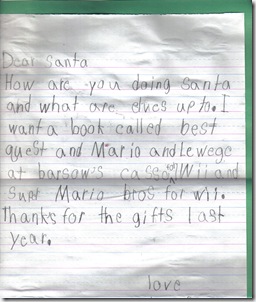 Dear Santa
How are you doing santa
and what are elves up to. I
want a book called best
quest and Mario and Lewege
at barsow's casso Wii and
super Mario bros for wii.
Thanks for the gifts last
year.
love